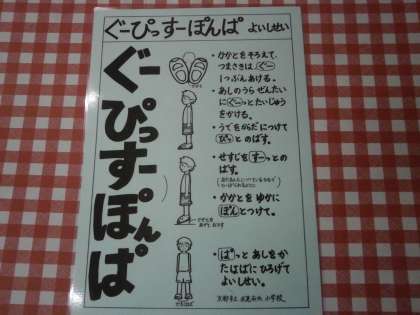 ぐーぴっすーぽんぱ よいしせい
ぐーぴっすーぽんぱ
・かかとをそろえて、
つまさきは、ぐー
1つぶんあける。
・あしのうら ぜんたい
にぐーっとたいじゅう
をかける。
・うでをからだにつけて
ぴっとのばす。
・せすじをすーっとの
ばす。
・かかとを ゆかに
ぽんとつけて。
・ぱっと あしをか
たはばに ひろげて
よいしせい。
かかとを
あげて おろす
かたはば
京都市立 小学校